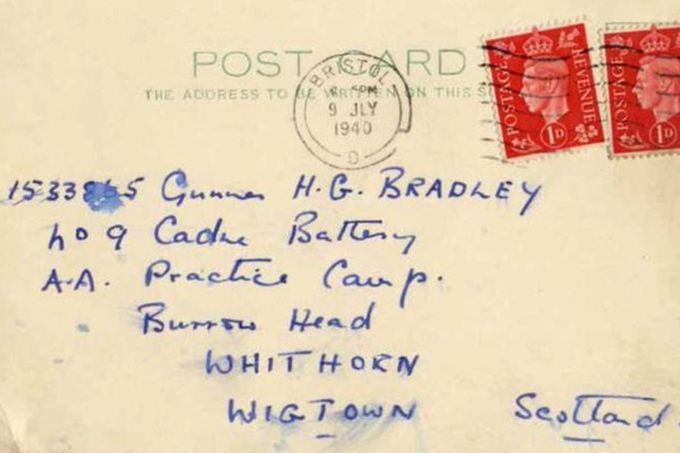 POST CARD
THE ADDRESS TO BE WRITTEN ON THIS
BRISTOL
PM
9 JLY
1940
D
POSTAGE REVENUE 1D
POSTAGE 1D
Gunner H.G. BRADLEY
No 9 Cadre Battery
A.A. Practice Camp.
Burrow Head
WHITHORN
WIGTOWN Scotland.